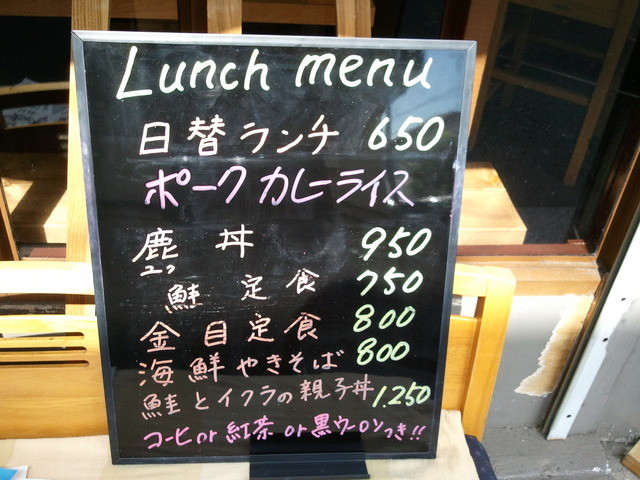 Lunch menu
日替ランチ 650
ポークカレーライス
鹿丼 950
ユッ
鮭定食 750
金目定食 800
海鮮やきそば 800
鮭とイクラの親子丼 1.250
コーヒー or 紅茶 or 黒ウーロンつき!!